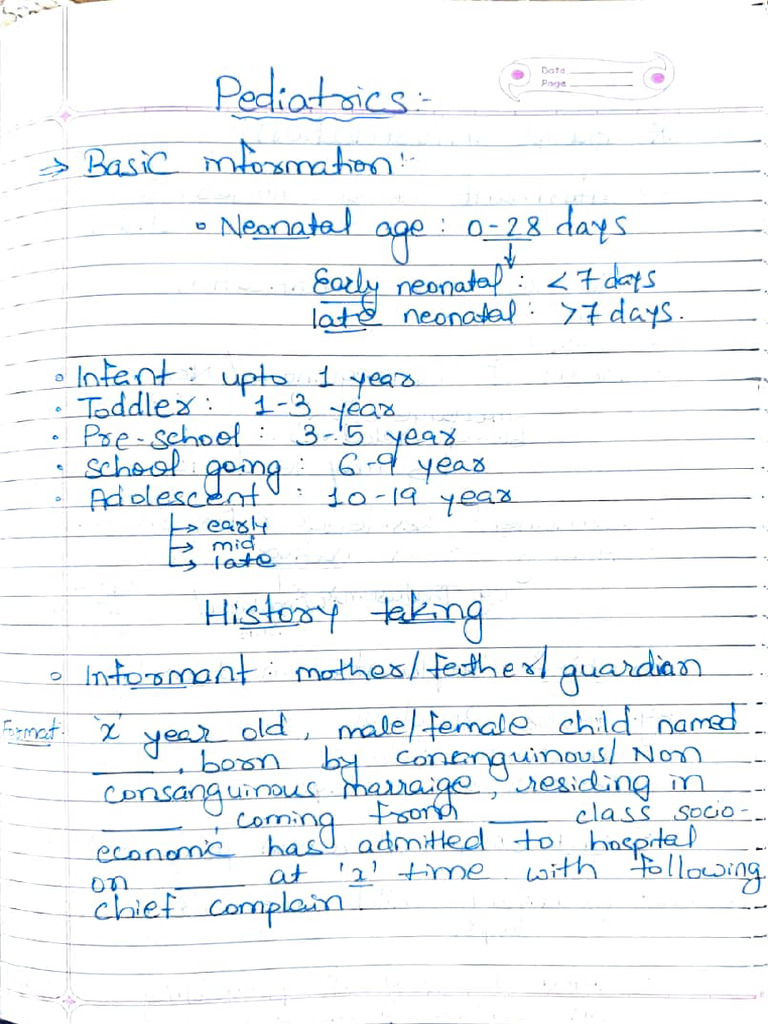 Date
Page
Pediatrics :-
⇒ Basic information :-
• Neonatal age : 0-28 days
↓
Early neonatal : <7 days
late neonatal : >7 days.
• Infant : upto 1 year
• Toddler : 1-3 year
• Pre-school : 3-5 year
• school going : 6-9 year
• Adolescent : 10-19 year
→ early
→ mid
→ late
History taking
• Informant : mother/father/guardian
Format. 'x' year old, male/female child named
____, born by conanguinous/Non
consanguinous marraige, residing in
____, coming from ____ class socio-
economic has admitted to hospital
on ____ at 'x' time with following
chief complain